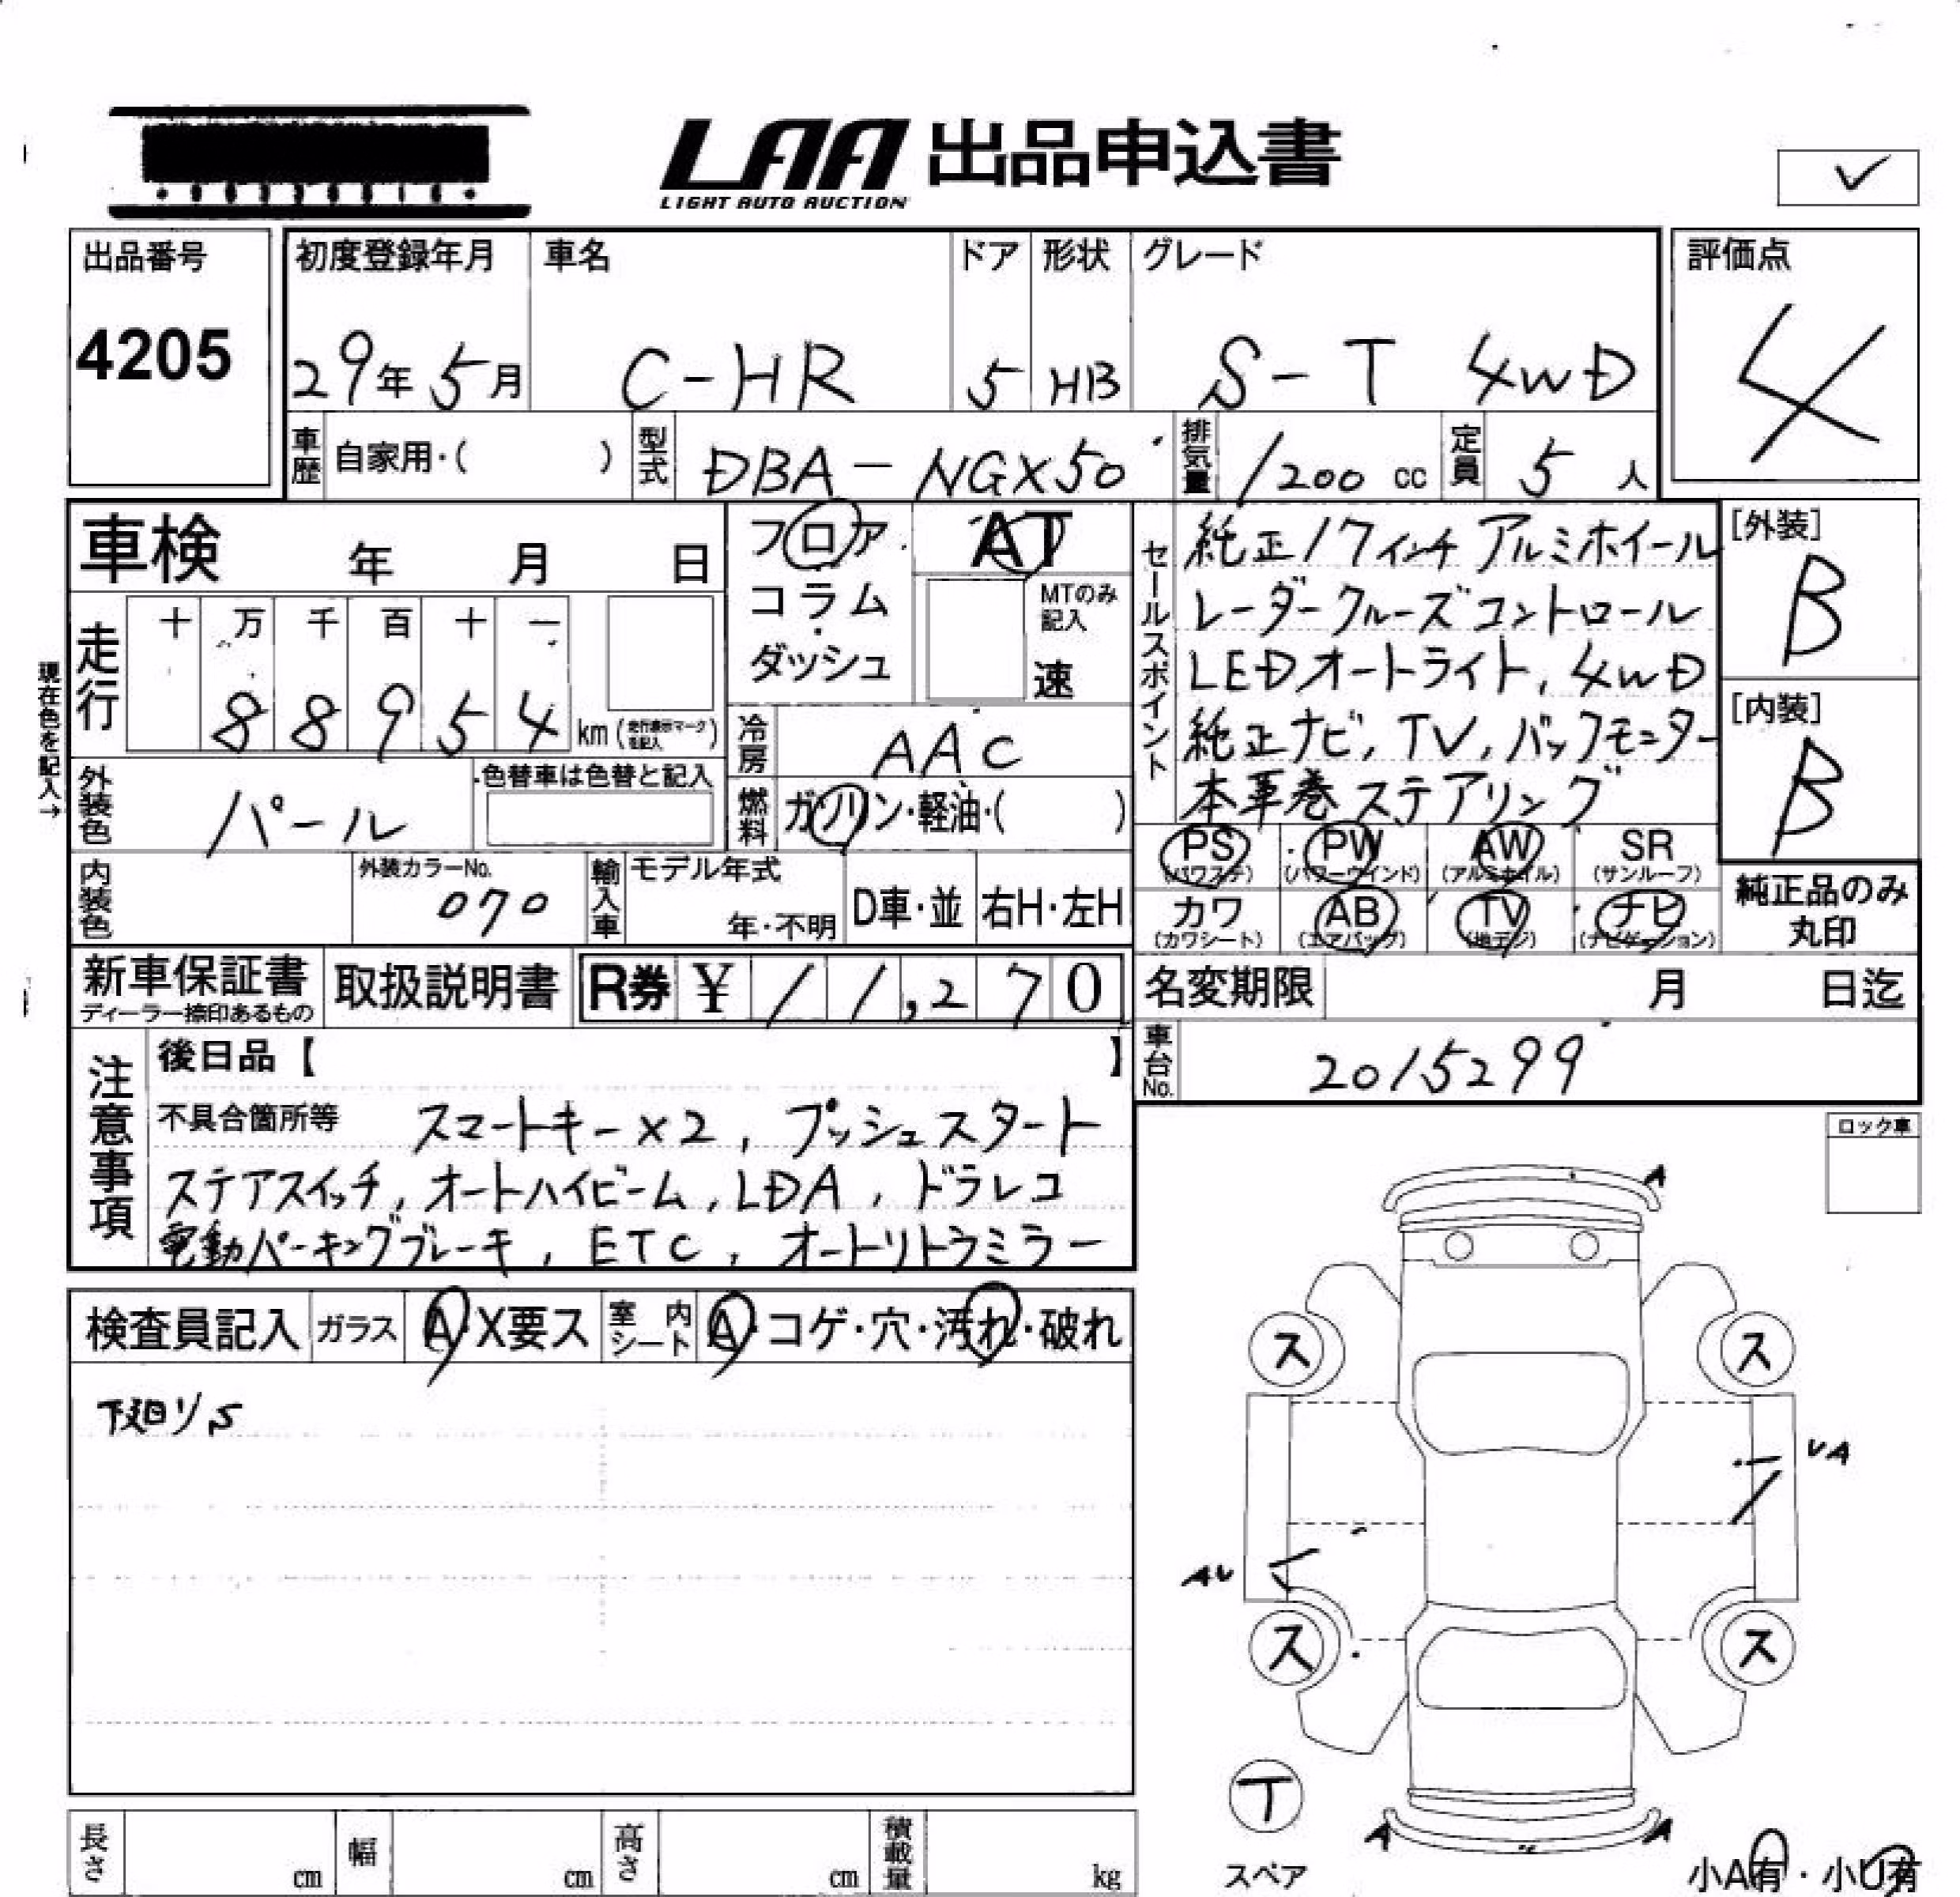 LAA 出品申込書
LIGHT AUTO AUCTION
✓
出品番号
4205
初度登録年月
29年5月
車名
C-HR
ドア
5
形状
HB
グレード
S-T 4WD
評価点
4
車歴 自家用・( )
型式 DBA-NGX50
排気量 1200 cc
定員 5 人
車検 年 月 日
フロア・
コラム・
ダッシュ
AT
MTのみ記入
速
セールスポイント
純正17インチ アルミホイール
レーダークルーズコントロール
LEDオートライト, 4WD
純正ナビ, TV, バックモニター
本革巻ステアリング
[外装]
B
[内装]
B
現在色を記入→
走行
十 万 千 百 十 一
8 8 9 5 4 km (走行表示マークを記入)
冷房 AAC
燃料 ガソリン・軽油・( )
外装色 パール
色替車は色替と記入
内装色
外装カラーNo.
070
輸入車
モデル年式
年・不明
D車・並
右H・左H
PS (パワステ)
PW (パワーウインド)
AW (アルミホイル)
SR (サンルーフ)
カワ (カワシート)
AB (エアバッグ)
TV (地デジ)
ナビ (ナビゲーション)
純正品のみ
丸印
新車保証書
ディーラー捺印あるもの
取扱説明書
R券 ¥ 11,270
名変期限 月 日迄
車台No. 2015299
注意事項
後日品【 】
不具合箇所等 スマートキー×2, プッシュスタート
ステアスイッチ, オートハイビーム, LDA, ドラレコ
電動パーキングブレーキ, ETC, オートリトラミラー
ロック車
検査員記入
ガラス A・X要ス
室内シート A・コゲ・穴・汚れ・破れ
下廻りS
A
ス
ス
UA
AU
ス
ス
T
スペア
A
A
小A有・小U有
長さ cm
幅 cm
高さ cm
積載量 kg